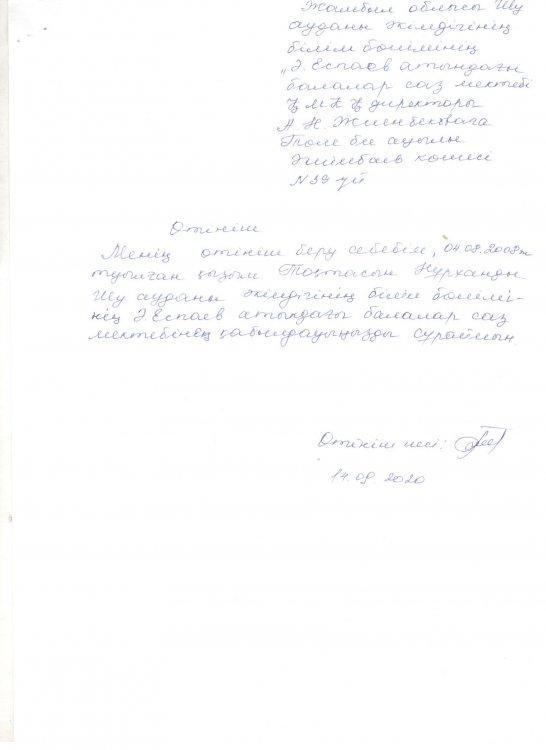 Жамбыл облысы Шу
ауданы әкімдігінің
білім бөлімінің
„Ә. Еспаев атындағы
балалар саз мектебі
КМҚК директоры
А Н. Жиенбековаға
Төле би ауылы
көшесі
N39 үй
Өтініш
Менің өтініш беру себебім, 04.08.2008ж
туылған қызым Тоқтасын Нұрханды
Шу ауданы әкімдігінің білім бөлімі-
нің Ә Еспаев атындағы балалар саз
мектебінең қабылдауыңызды сұраймын.
Өтініш иесі:
14.09. 2020